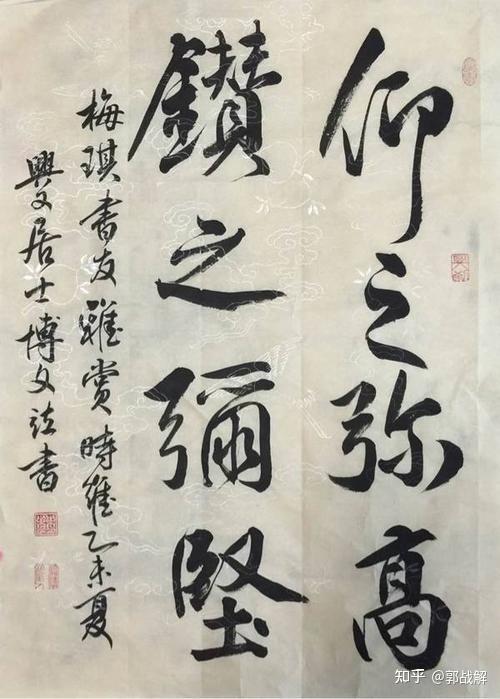 仰之弥高
鑽之彌堅
梅琪書友雅賞時維乙未夏
興文居士博文法書
知乎 @郭战解